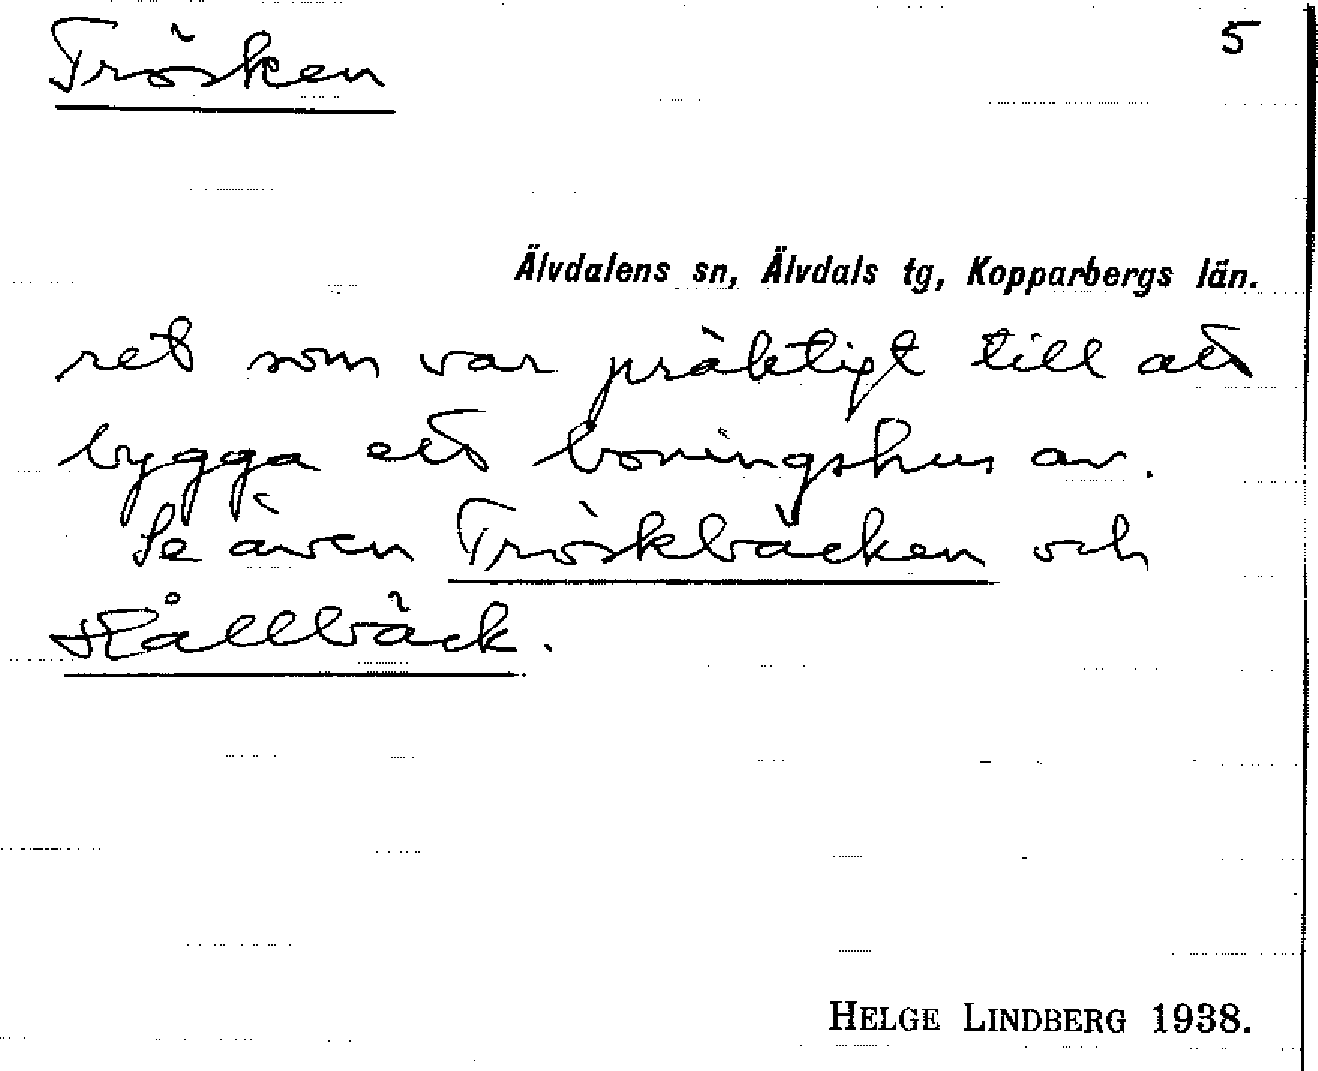 Trösken
5
Älvdalens sn, Älvdals tg, Kopparbergs län.
ret som var präktigt till att
bygga ett boningshus av.
Se även Tröskbäcken och
Hållbäck.
HELGE LINDBERG 1938.